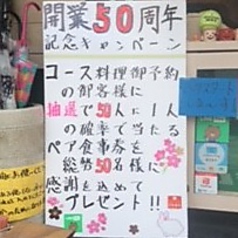 開業50周年
記念キャンペーン
コース料理御予約
の御客様に
抽選で50人に1人
の確率で当たる
ペア食事券を
総勢50名様に
感謝を込めて
プレゼント!!